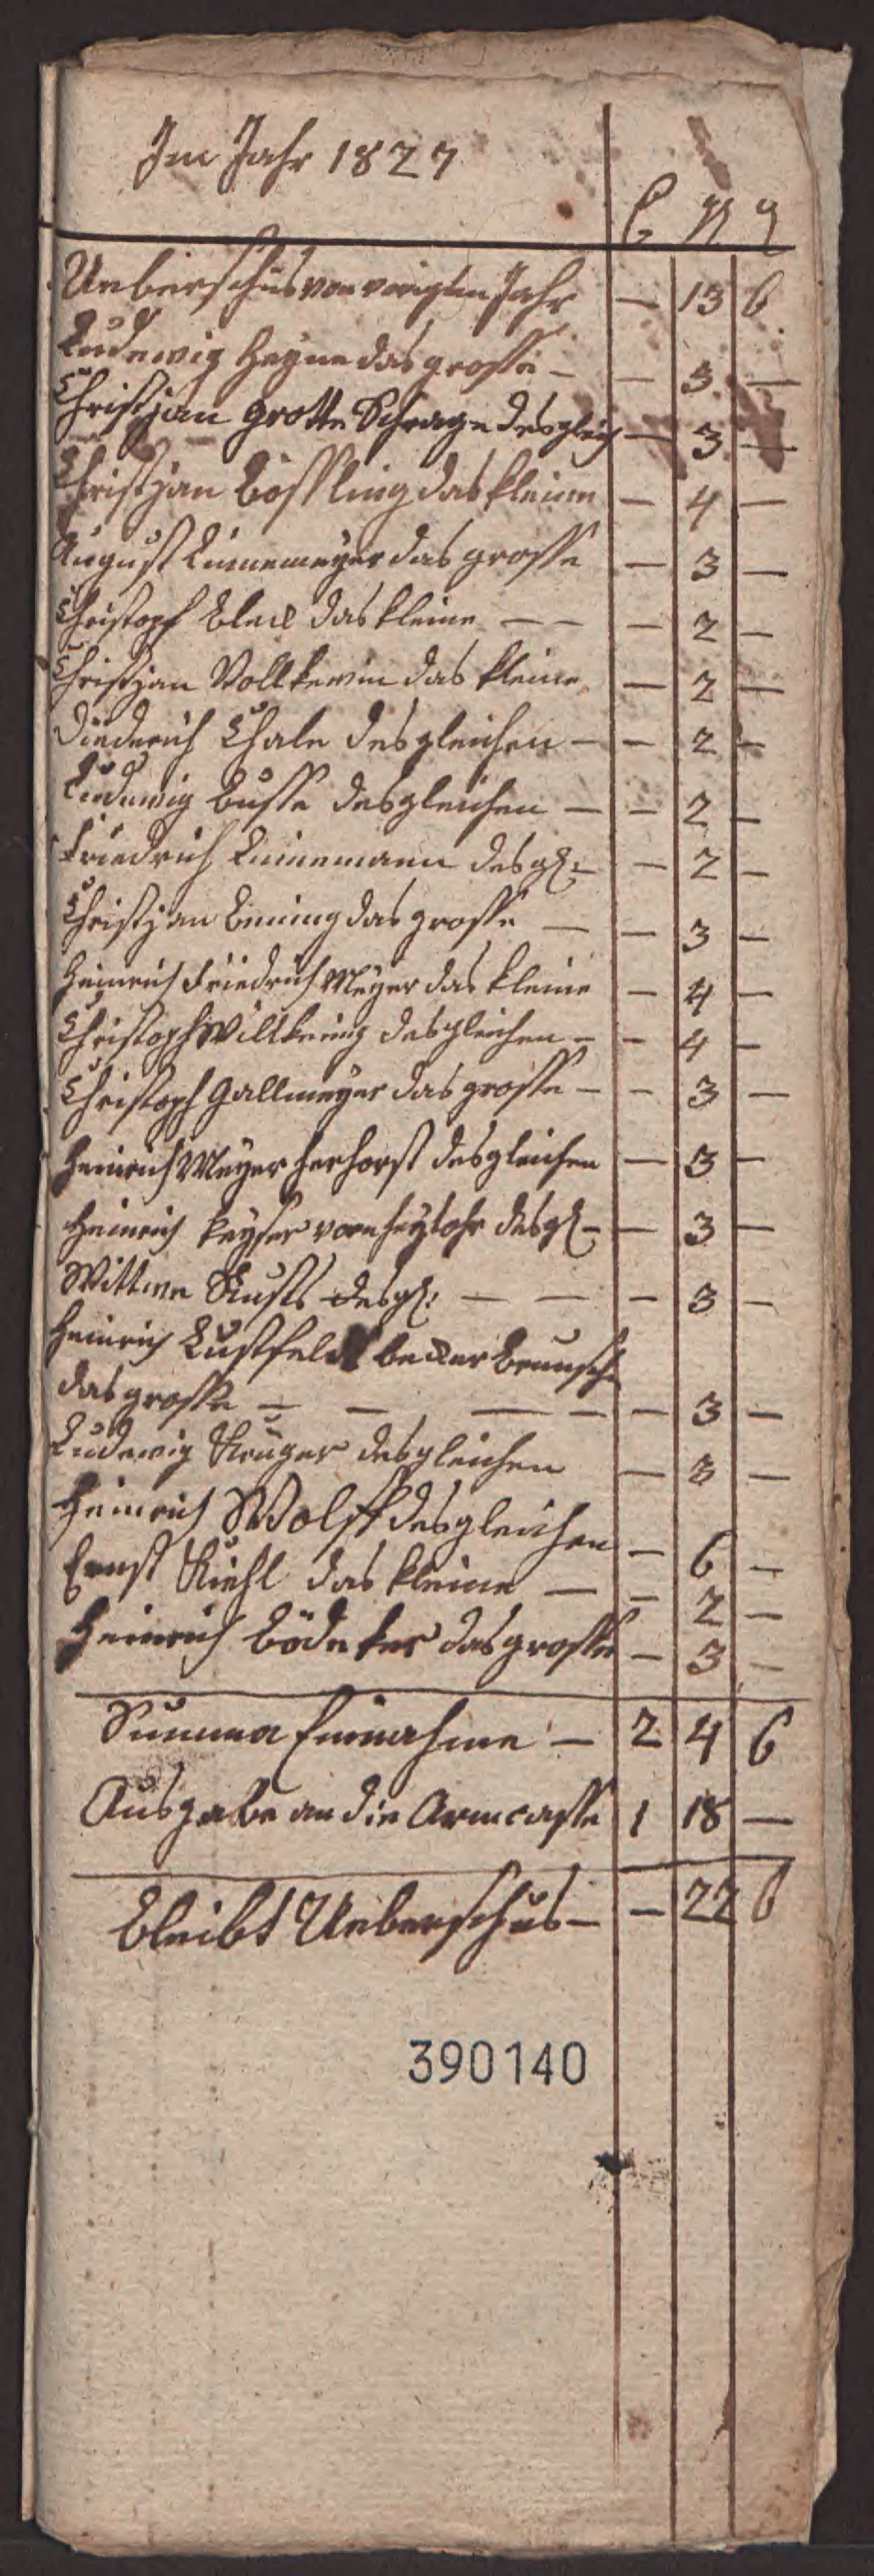 Im Jahr 1827
Ueberschus von vorigten Jahr — 13 6
Ludewig Heyne das grosse — — 3 —
Christjan Grotte Schrage desgleich — 3 —
Christjan Bössling das kleine — 4 —
August Linnemeyer das grosse — 3 —
Christopf Bleck das kleine — — — 2 —
Christjan Vollkewin das kleine — 2 —
Diederich Thale desgleichen — — 2 —
Ludewig Busse desgleichen — — 2 —
Friedrich Linnemann desgl: — 2 —
Christjan Bening das grosse — — 3 —
Heinrich Friedrich Meyer das kleine — 4 —
Christoph Willkening desgleichen — — 4 —
Christoph Gallmeyer das grosse — — 3 —
Heinrich Meyer Herhorst desgleichen — 3 —
Heinrich Keyser vorn desgl — — 3 —
Wittwe Rusts desgl: — — — 3 —
Heinrich Lustfeld becker
das grosse — — — — — 3 —
Ludewig Krüger desgleichen — 3 —
Heinrich Wolff desgleichen — 6 —
Ernst Kiehl das kleine — — 2 —
Heinrich Bödeker das grosse — 3 —
Summa Einnahme — 2 4 6
Ausgabe an die Armcasse 1 18 —
Bleibt Ueberschus — — 22 6
390140